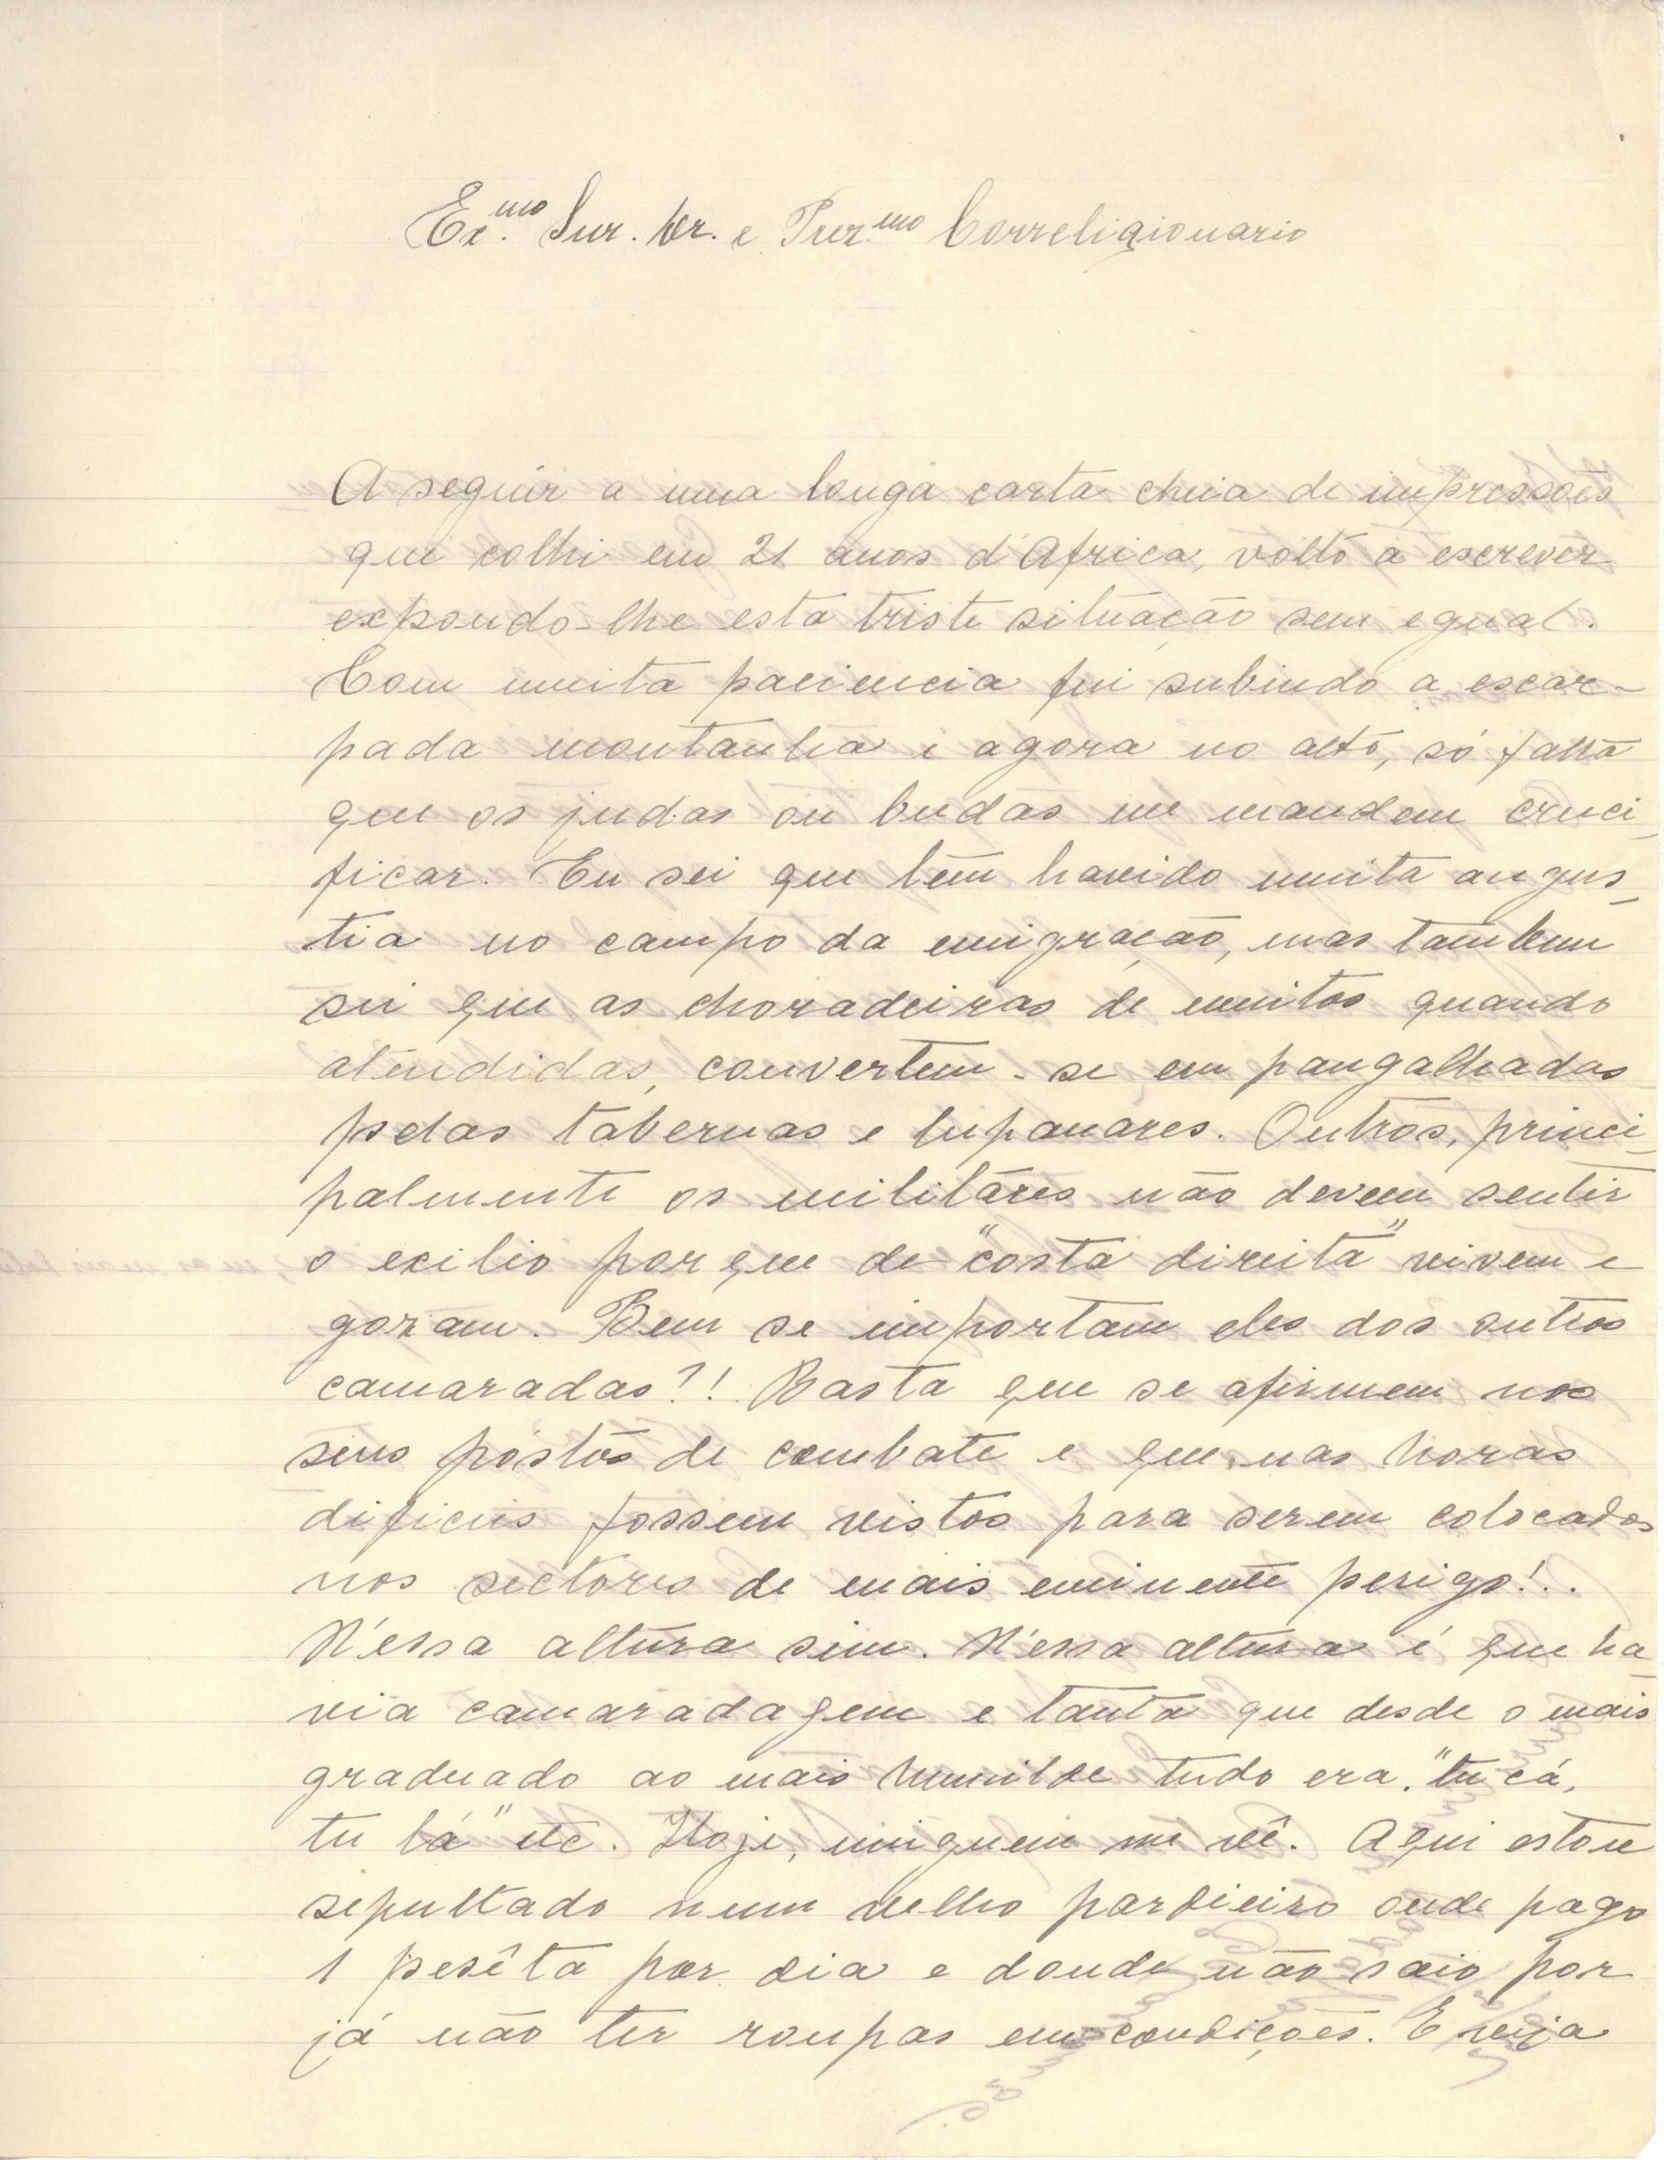 Ex.mo Snr. Dr. e Prez.mo Correligionario
A seguir a uma longa carta cheia de impressões
que colhi em 21 anos d'Africa, volto a escrever
expondo-lhe esta triste situação sem egual.
Com muita paciencia fui subindo a escar-
pada montanha e agora no alto, só falta
que os judas ou budas me mandem cruci-
ficar. Eu sei que têm havido muita angus-
tia no campo da emigração, mas tambem
sei que as choradeiras de muitos quando
atendidas, convertem-se em pangalhadas
pelas tabernas e lupanares. Outros, princi-
palmente os militares não devem sentir
o exilio porque de "costa direita" vivem e
gozam. Bem se importam eles dos outros
camaradas?! Basta que se afirmem nos
seus póstos de combate e que nas horas
dificeis fossem vistos para serem colocados
nos sectores de mais eminente perigo!..
N'essa altura sim. N'essa altura é que ha-
via camaradagem e tanta que desde o mais
graduado ao mais humilde tudo era "tu cá,
tu lá" etc. Hoje, ninguem me vê. Aqui estou
sepultado num velho pardieiro onde pago
1 pesêta por dia e donde não saio por
já não ter roupas em condições. E veja